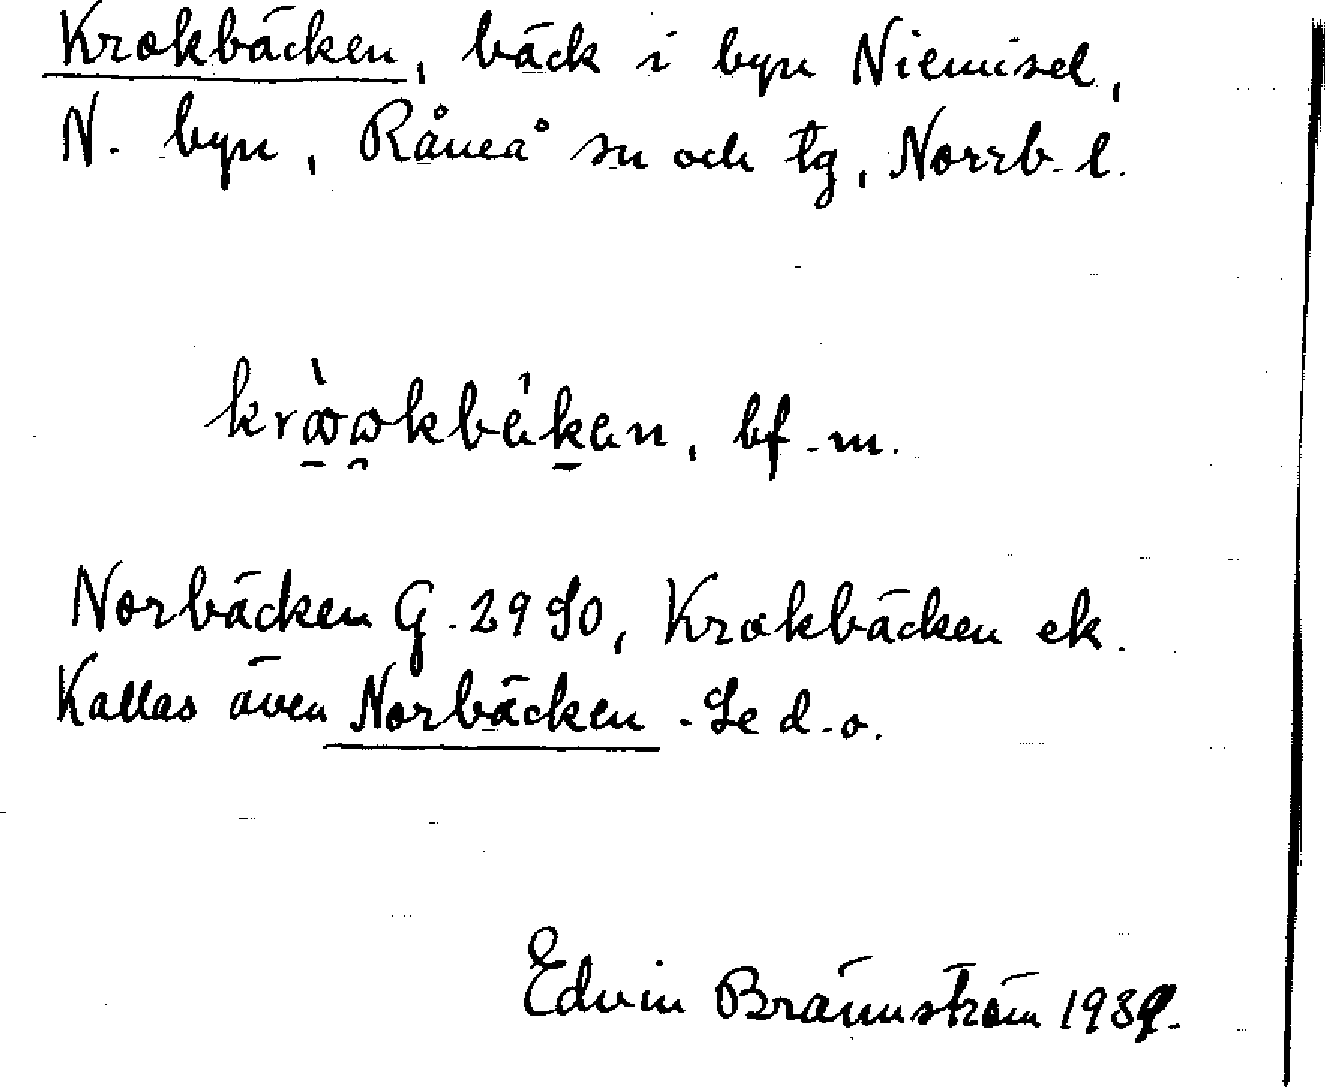 Krokbäcken, bäck i byn Niemisel,
N. byn, Råneå sn och tg, Norrb. l.
bf. m.
Norbäcken G. 29 SO, Krokbäcken ek.
Kallas även Norbäcken. Se d. o.
Edvin Brännström 1939.